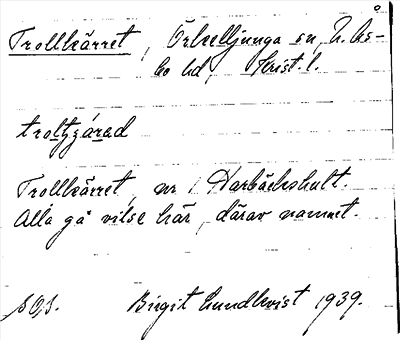 Trollkärret, Örkelljunga sn, N. Ås-
bo hd, Krist. l.
Trollkärret, nr 1 Harbäckshult.
Alla gå vilse här, därav namnet.
Birgit Lundkvist 1939.